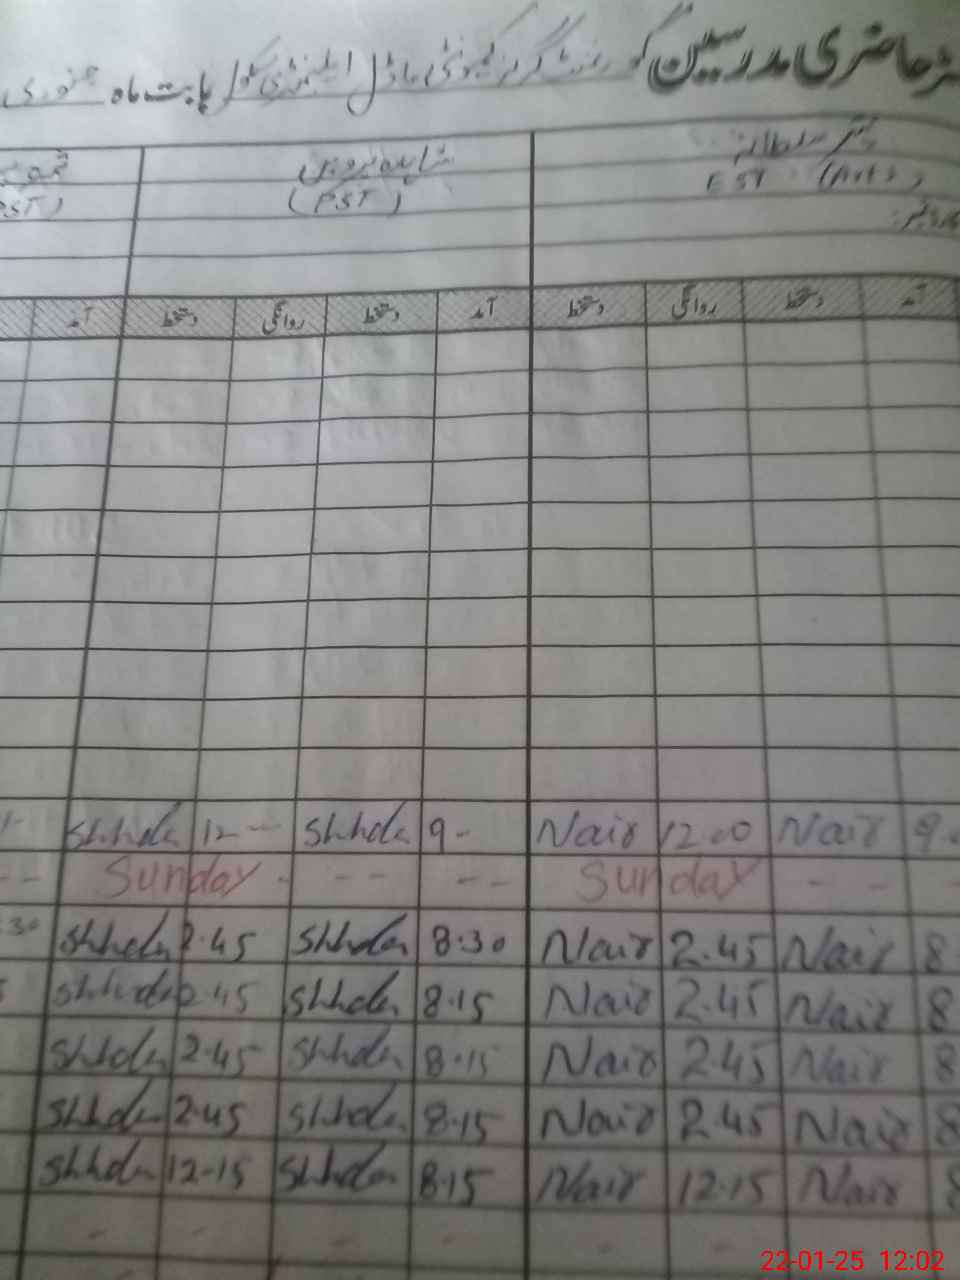 حاضری مدرسین گورنمنٹ گرلز کمیونٹی ماڈل ایلیمنٹری سکول بابت ماہ جنوری
سلطانہ شاہدہ پروین
EST (Arts) (PST) PST)
آمد دستخط روانگی دستخط آمد دستخط روانگی دستخط آمد
Shhda 12 -- Shhda 9 - Nair 12.00 Nair 9
-- Sunday - -- -- Sunday - - -
30 Shhda 2.45 Shhda 8:30 Nair 2.45 Nair 8
Shhda 2.45 Shhda 8.15 Nair 2.45 Nair 8
Shhda 2.45 Shhda 8.15 Nair 2.45 Nair 8
Shhda 2.45 Shhda 8.15 Nair 2.45 Nair 8
Shhda 12-15 Shhda 8.15 Nair 12.15 Nair 8
22-01-25 12:02